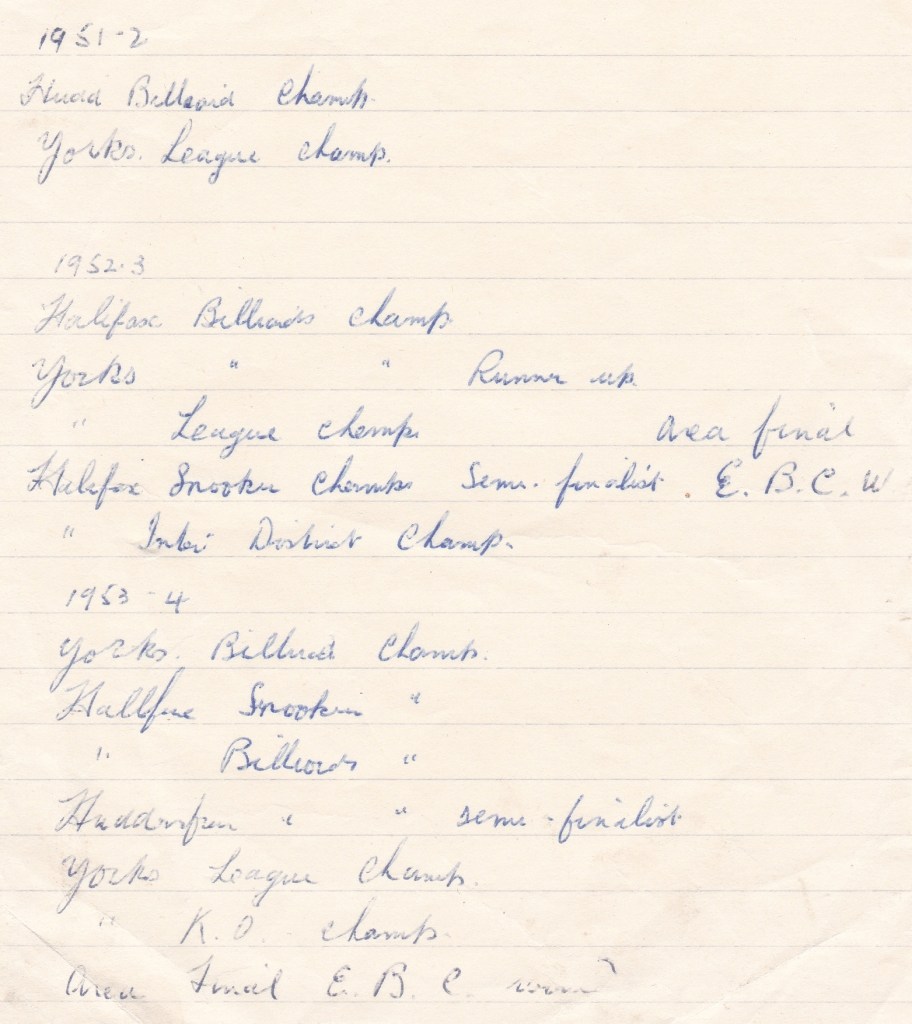 1951-2
Hudd Billiard Champ.
Yorks. League Champ.
1952.3
Halifax Billiards Champ
Yorks " " Runner up.
" League Champ. Area final
Halifax Snooker Champ. Semi-finalist. E. B. C. W
" Inter District Champ.
1953-4
Yorks. Billiard Champ.
Halifax Snooker "
" Billiards "
" " semi-finalist
Yorks League Champ.
" K.O. Champ.
Area Final E. B. C.